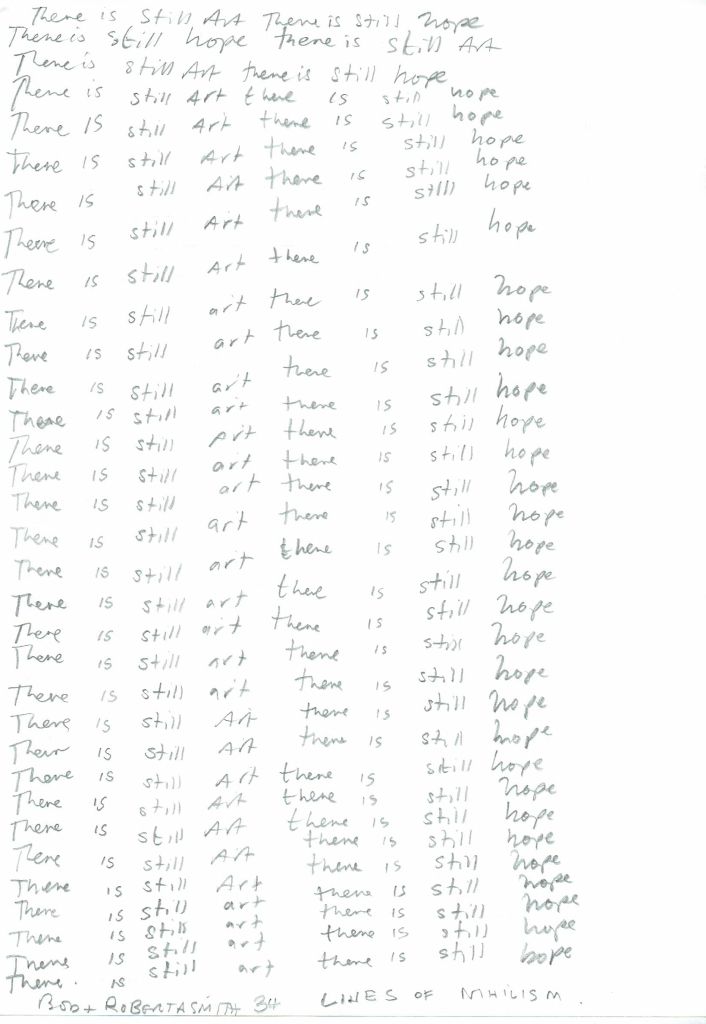 There is Still Art There is still hope
There is still hope there is still Art
There is still Art there is still hope
There is still Art there is still hope
There is still Art there is still hope
There is still Art there is still hope
There is still Art there is still hope
There is still Art there is still hope
There is still Art there is still hope
There is still art there is still hope
There is still art there is still hope
There is still art there is still hope
There is still art there is still hope
There is still Art there is still hope
There is still art there is still hope
There is still art there is still hope
There is still art there is still hope
There is still art there is still hope
There is still art there is still hope
There is still art there is still hope
There is still art there is still hope
There is still art there is still hope
There is still Art there is still hope
There is still Art there is still hope
There is still Art there is still hope
There is still Art there is still hope
There is still Art there is still hope
There is still Art there is still hope
There is still Art there is still hope
There is still art there is still hope
There is still art there is still hope
There is still art there is still hope
There. is still art there is still hope
BOB + ROBERTA SMITH 34 LINES OF NIHILISM.